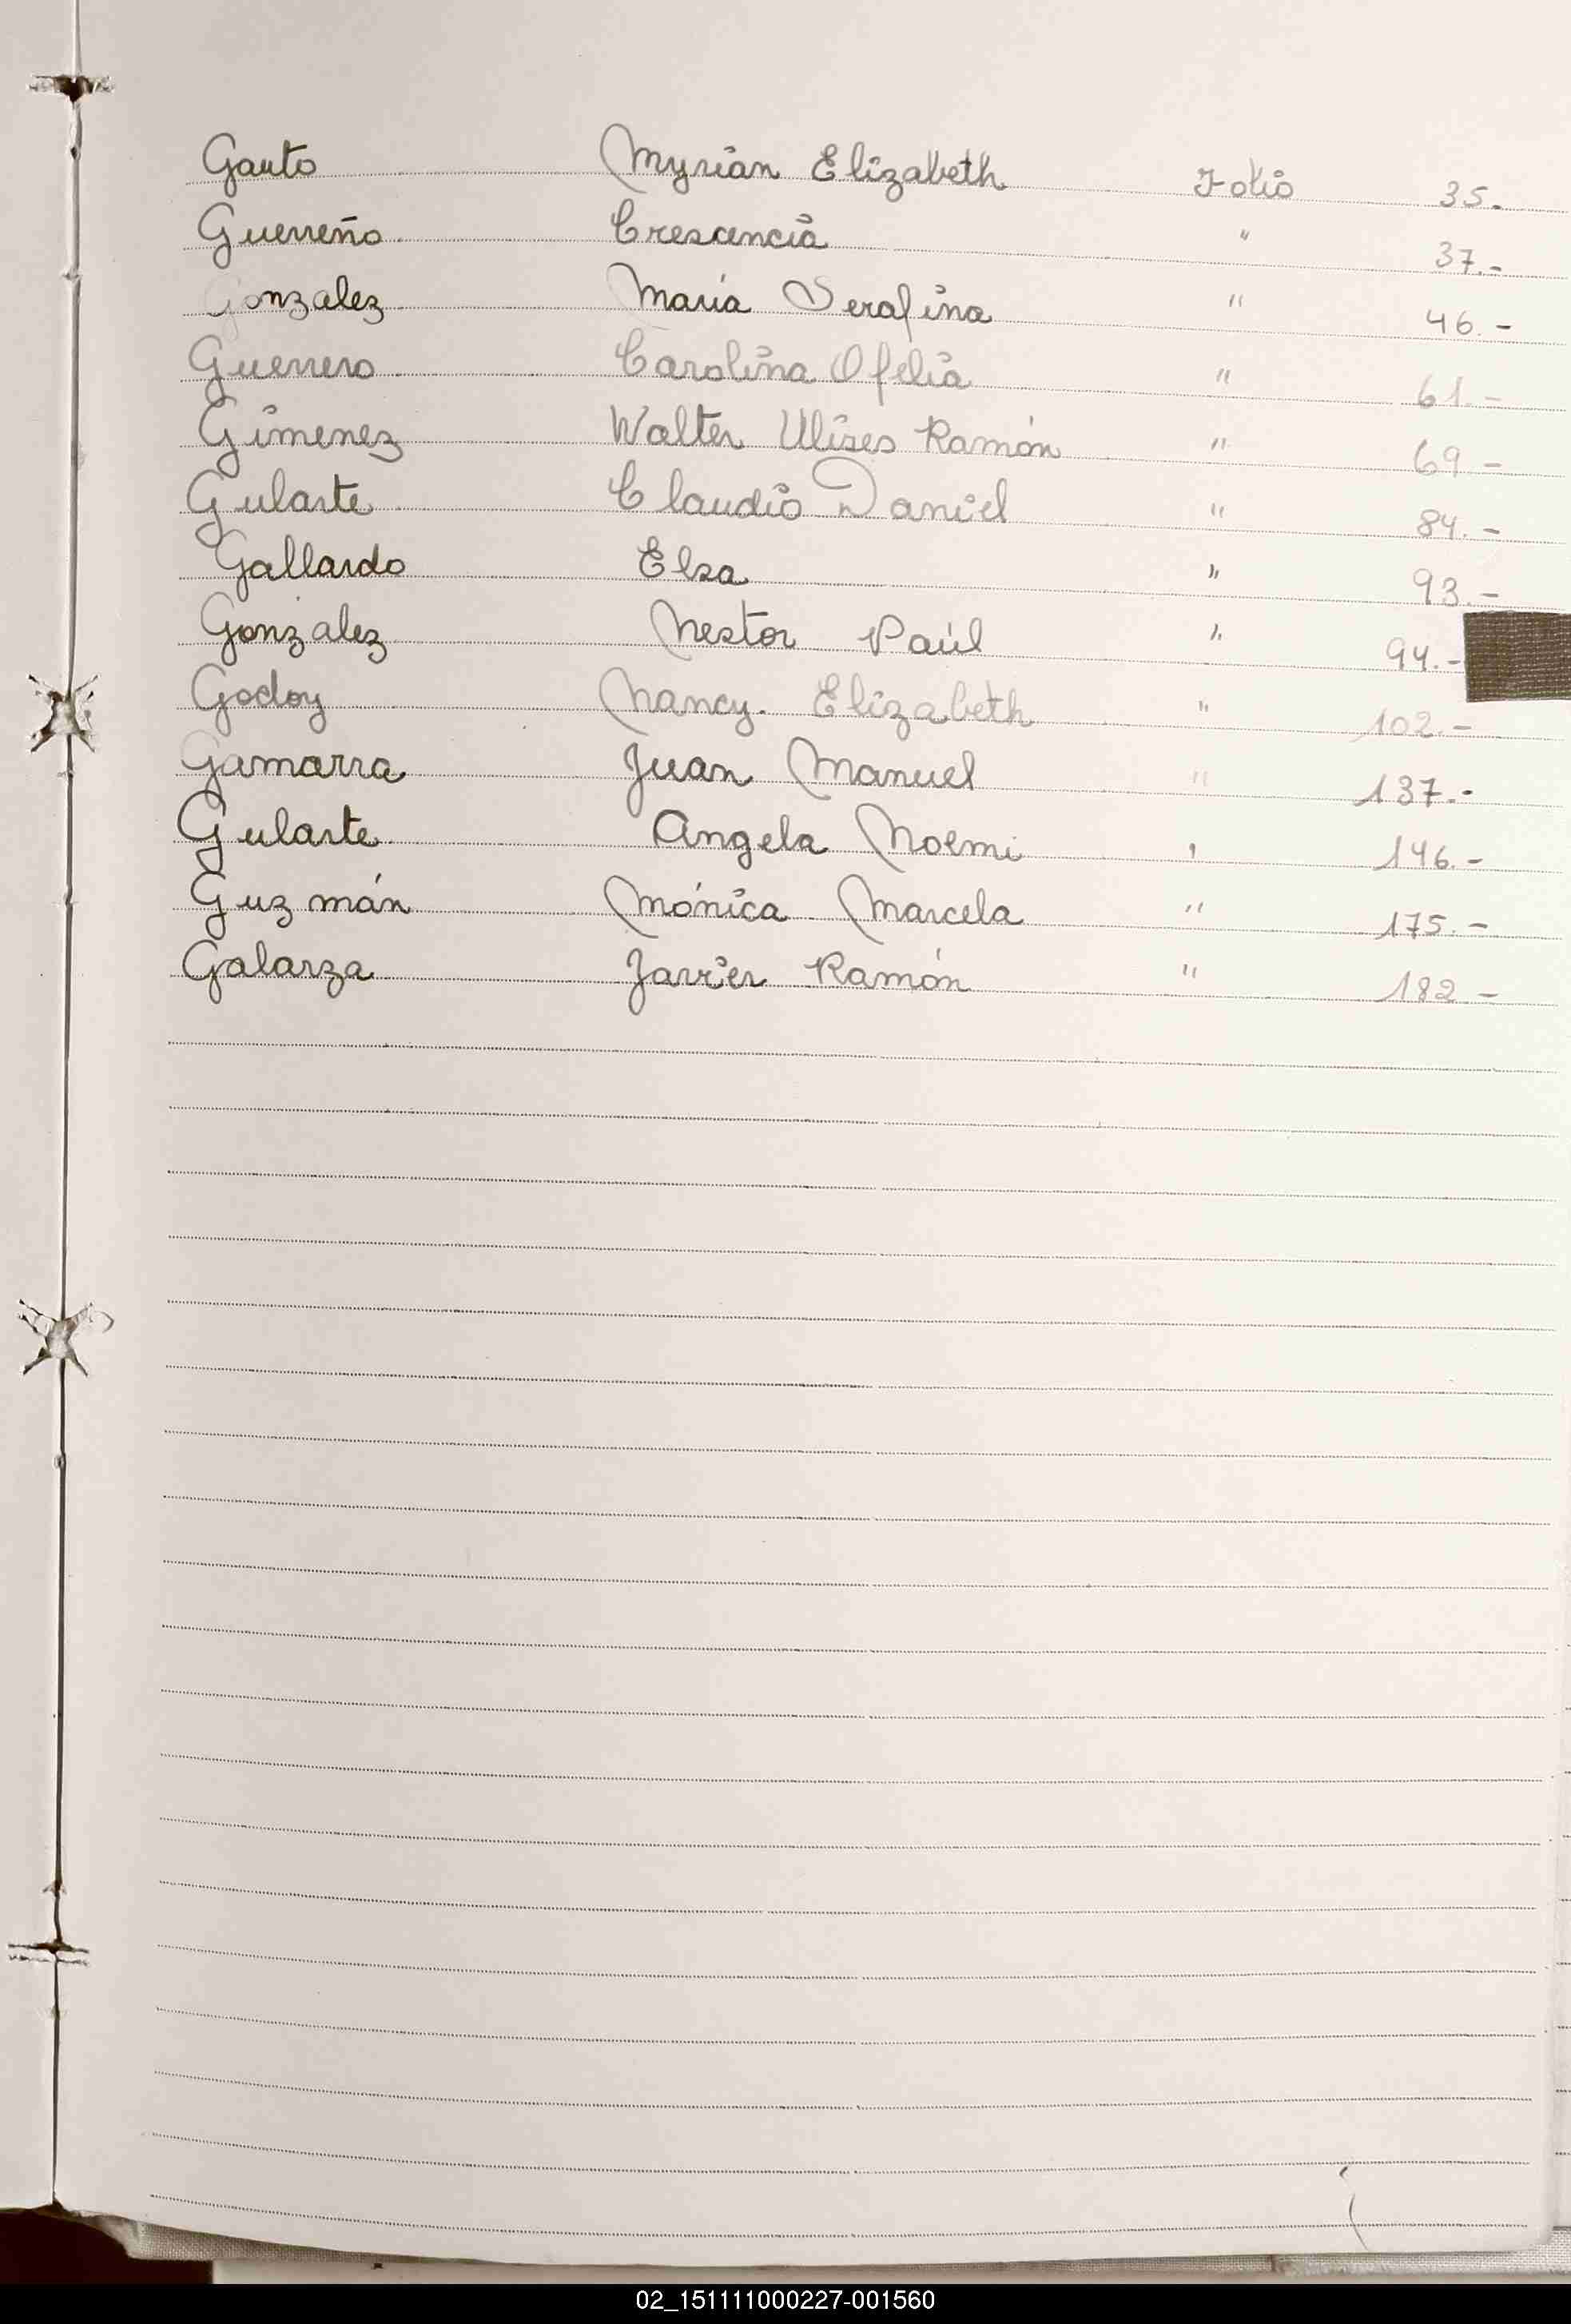 Gauto Myrian Elizabeth Folio 35.-
Guerreño Crescencia " 37.-
Gonzalez María Serafina " 46.-
Guerrero Carolina Ofelia " 61.-
Gimenez Walter Ulises Ramón " 69-
Gularte Claudio Daniel " 84.-
Gallardo Elsa " 93.-
Gonzalez Nestor Paúl " 94.-
Godoy Nancy. Elizabeth " 102.-
Gamarra Juan Manuel " 137.-
Gularte Angela Noemi " 146.-
Guzmán Mónica Marcela " 175.-
Galarza Javier Ramón " 182-
02_151111000227-001560